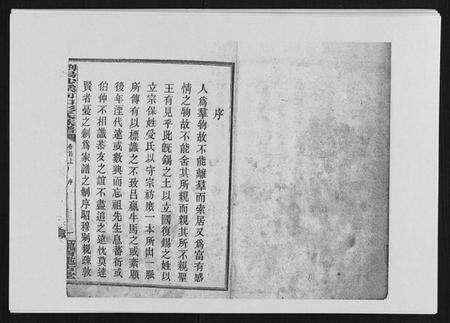 序
人爲羣物故不能離羣而索居又爲富有感
情之物故不能舍其所親而親其所不親聖
王有見乎此旣錫之土以立國復錫之姓以
立宗保姓受氏以守宗祊庶一本所出一脈
所傳有以標識之不致呂嬴牛馬之或紊顧
後年湮代遠或數典而忘祖先生息蕃衍或
伯仲不相識恭友之誼不盡追之遠忱莫達
賢者憂之創爲家譜之制序昭穆别親疎敦
卷首上 序